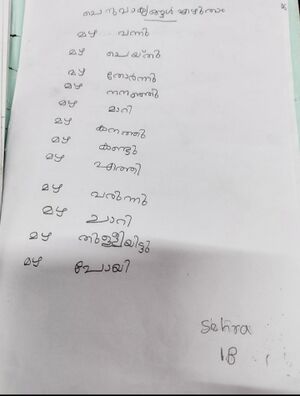 ചെറുവാക്യങ്ങൾ എഴുതാം
മഴ വന്നു
മഴ പെയ്തു
മഴ തോർന്നു
മഴ നനഞ്ഞു
മഴ മാറി
മഴ കനത്തു
മഴ കണ്ടു
മഴ എത്തി
മഴ വരുന്നു
മഴ ചാറി
മഴ തുള്ളിയിട്ടു
മഴ പോയി
Sehra
1B